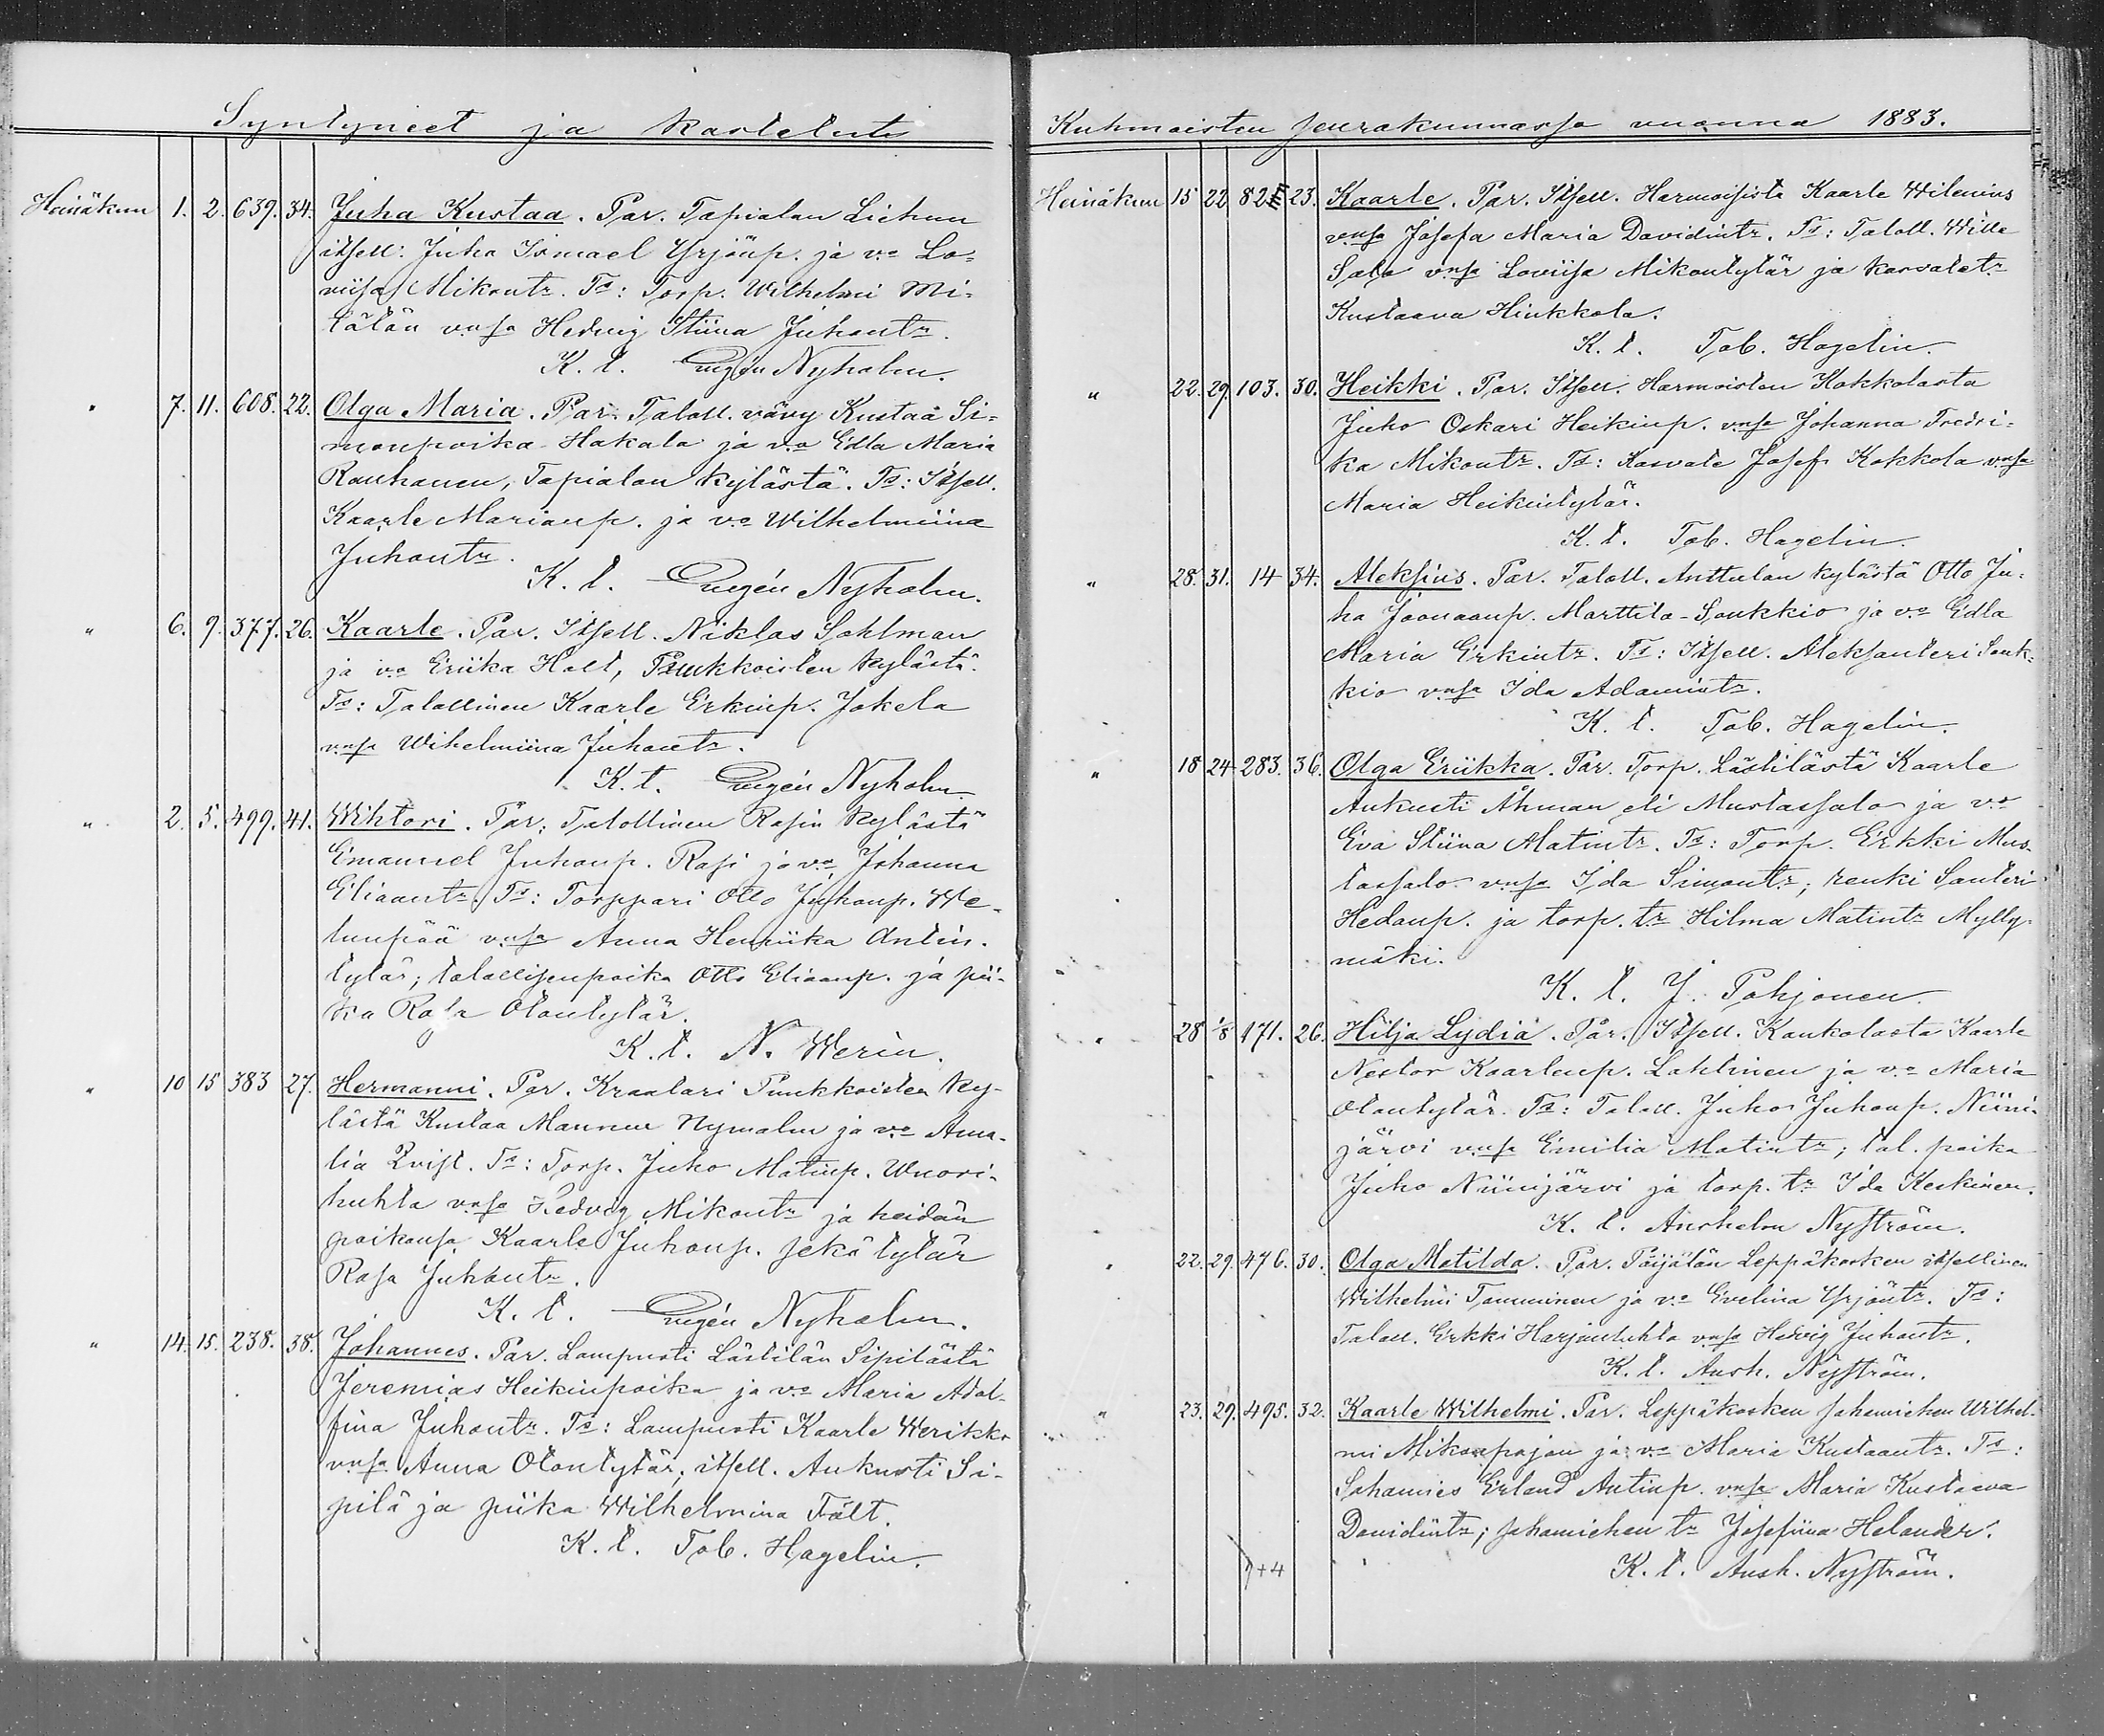 Syntyneet ja kastetut
Heinäkuu 1. 2. 639. 34. Juha Kustaa. Par. Tapialan Liehun
itsell: Juha Ismael Yrjönp. ja v:o Lo-
viisa Mikontr. Ts: Torp. Wilhelmi Mi-
tälän v:nsa Hedvig Stiina Juhontr.
K. t. Eugén Nyholm.
" 7. 11. 608. 22. Olga Maria. Par. Taloll. vävy Kustaa Si-
monpoika Hakala ja v:o Edla Maria
Rauhanen, Tapialan kylästä. Ts: Itsell.
Kaarle Marianp. ja v:o Wilhelmiina
Juhontr.
K. t. Eugén Nyholm.
" 6. 9. 377. 26. Kaarle. Par. Itsell. Niklas Sahlman
ja v:o Eriika Hall, Puukkoisten kylästä.
Ts: Talollinen Kaarle Erkinp. Jokela
v:nsa Wihelmiina Juhontr.
K. t. Eugén Nyholm.
" 2. 5. 499. 41. Wihtori. Par: Talollinen Rasin kylästä
Emanuel Juhonp. Rasi ja v:o Johanna
Eliaantr. Ts: Torppari Otto Juhonp. We-
tunpää v:nsa Anna Henriika Antin-
tytär; talollisenpoika Otto Eliaanp. ja pii-
ka Rosa Otontytär.
K. t. N. Werin.
" 10 15 383 27. Hermanni. Par. Kraatari Puukkoisten ky-
lästä Kustaa Mannu Nymalm ja v:o Ama-
lia Qvist. Ts: Torp. Juho Matinp. Wuori-
huhta v:nsa Hedvig Mikontr ja heidän
poikansa Kaarle Juhonp. sekä tytär
Rosa Juhontr.
K. t. Eugén Nyholm.
" 14. 15. 238. 38. Johannes. Par. Lampuoti Lästilän Sipilästä
Jeremias Heikinpoika ja v:o Maria Adol-
fina Juhontr. Ts: Lampuoti Kaarle Werikko
v:nsa Anna Otontytär, itsell. Aukusti Si-
pilä ja piika Wilhelmina Fält.
K. t. Tob. Hagelin.
Kuhmoisten seurakunnassa vuonna 1883.
Heinäkuu 15 22 82 23. Kaarle. Par. Itsell. Harmoisista Kaarle Wilenius
v:nsa Josefa Maria Davidintr. Ts: Taloll. Wille
Salo v:nsa Loviisa Mikontytär ja kasvatetr
Kustaava Hinkkala.
K. t. Tob. Hagelin.
" 22. 29. 103. 30. Heikki. Par. Itsell. Harmoisten Kokkolasta
Juho Oskari Heikinp. v:nsa Johanna Fredri-
ka Mikontr. Ts: Kasvate Josef Kokkola v:nsa
Maria Heikintytär.
K. t. Tob. Hagelin.
" 28. 31. 14 34. Aleksius. Par. Taloll. Anttulan kylästä Otto Ju-
ho Joonaanp. Marttila-Soukkio ja v:o Edla
Maria Erkintr. Ts: Itsell. Aleksanteri Souk-
kio v:nsa Ida Adamintr.
K. t. Tob. Hagelin.
" 18 24 283. 36. Olga Eriikka. Par. Torp. Lästilästä Kaarle
Aukusti Åhman eli Mustassalo ja v:o
Eva Stiina Matintr. Ts: Torp. Erkki Mus-
tassalo v:nsa Ida Simontr; renki Santeri
Hedanp. ja torp. tr Hilma Matintr Mylly-
mäki.
K. t. J. Pohjonen.
" 28 1/8 171. 26. Hilja Lydia. Par. Itsell. Kaukolasta Kaarle
Nestor Kaarlenp. Lahtinen ja v:o Maria
Otontytär. Ts: Taloll. Juho Juhonp. Niini-
järvi v:nsa Emilia Matintr; tal. poika
Juho Niinijärvi ja torp. tr Ida Keskinen.
K. t. Anshelm Nyström.
" 22. 29. 476. 30. Olga Matilda. Par. Päijälän Leppäkosken itsellinen
Wilhelmi Tamminen ja v:o Evelina Yrjöntr. Ts:
Taloll. Erkki Harjunluhta v:nsa Hedvig Juhontr.
K. t. Ansh. Nyström.
" 23. 29. 495. 32. Kaarle Wilhelmi. Par. Leppäkosken sahamiehen Wilhel-
mi Mikonpojan ja v:o Maria Kustaantr. Ts:
Sahamies Erland Antinp. v:nsa Maria Kustaava
Davidintr; sahamiehen tr Josefiina Helander.
9+4 K. t. Ansh. Nyström.